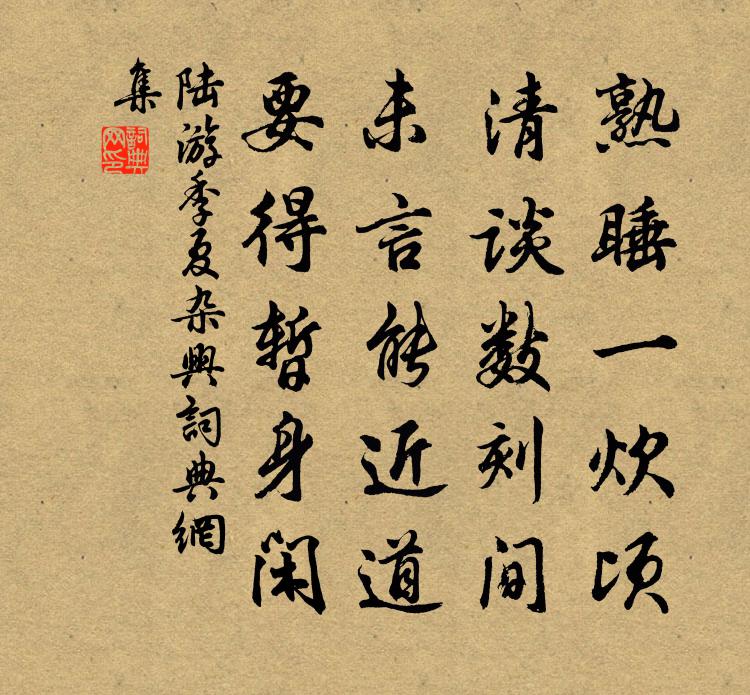 熟睡一炊顷
清谈数刻间
未言能近道
要得暂身闲
陆游季夏杂兴詞典網
集
詞典
网印